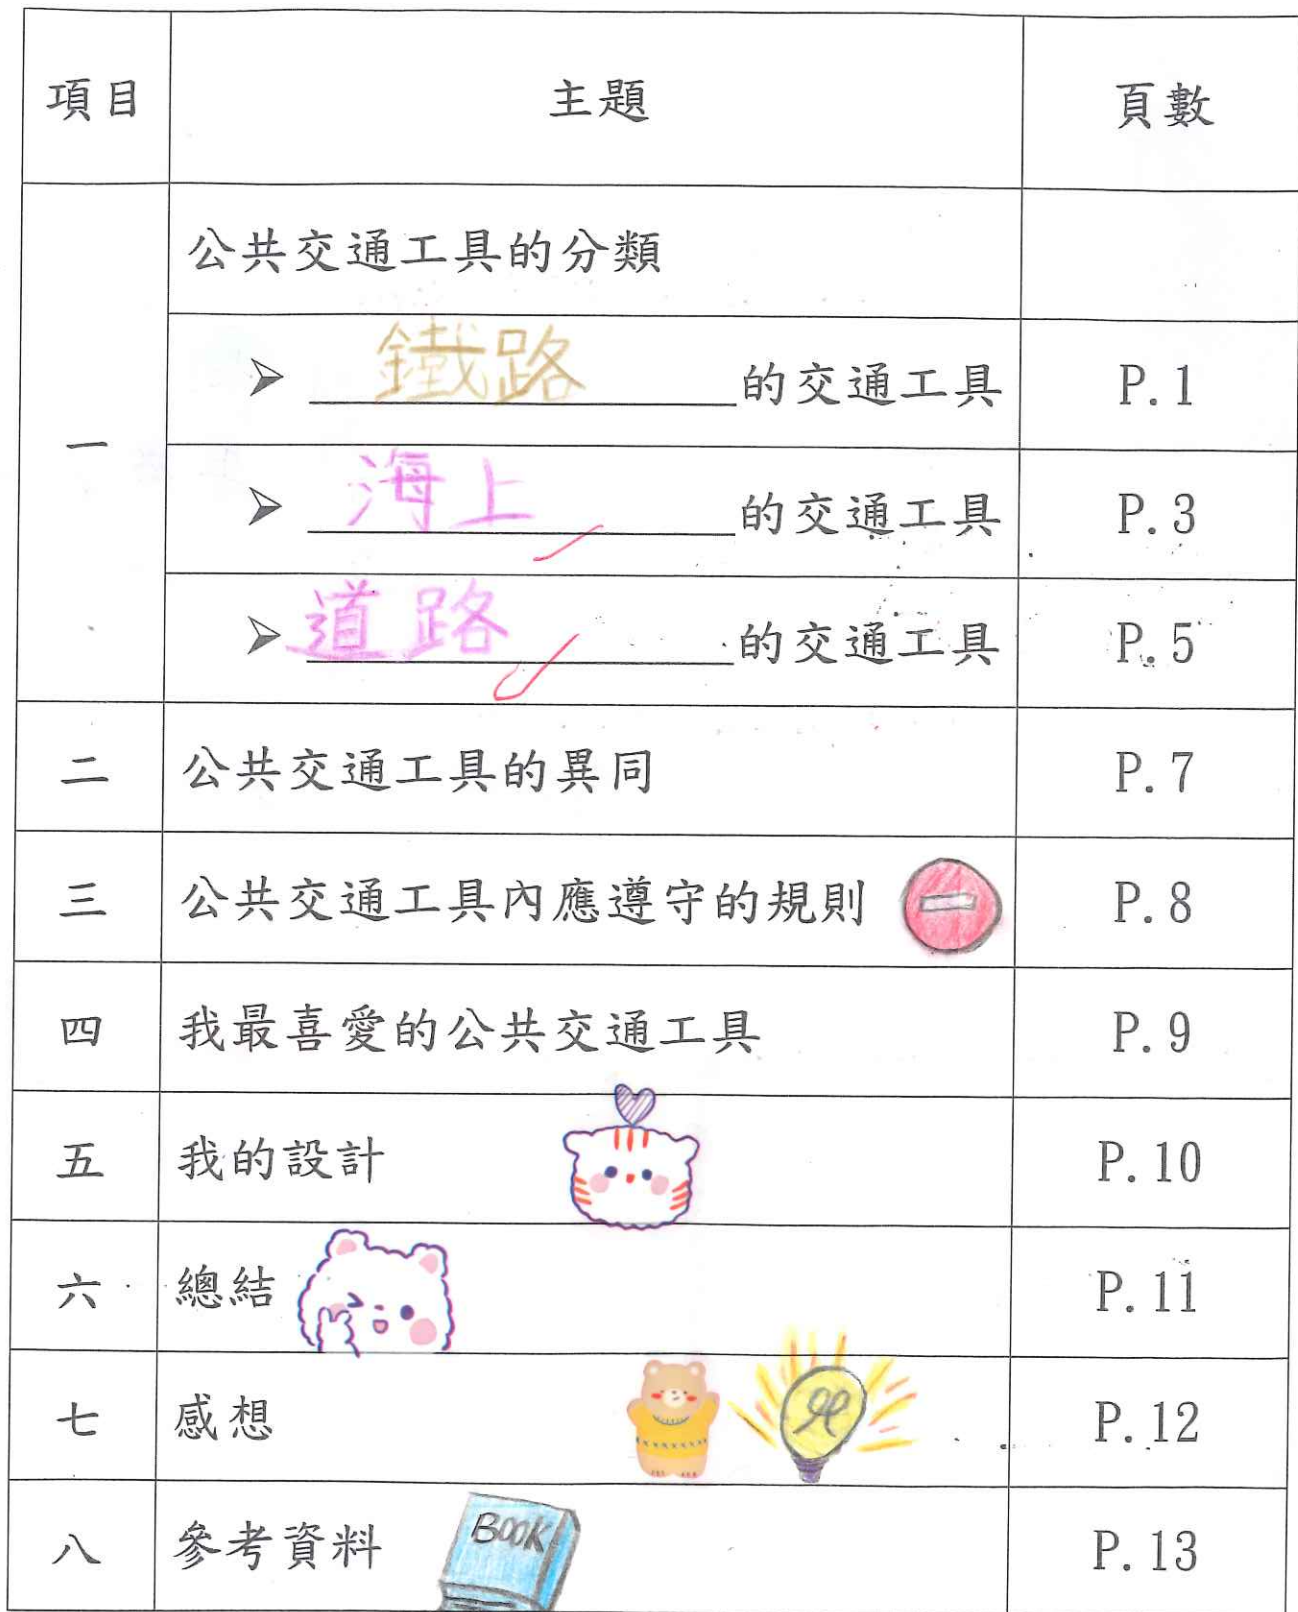 項目 主題 頁數
公共交通工具的分類
一
➢ 鐵路 的交通工具 P. 1
➢ 海上 的交通工具 P. 3
➢ 道路 的交通工具 P. 5
二 公共交通工具的異同 P. 7
三 公共交通工具內應遵守的規則 P. 8
四 我最喜愛的公共交通工具 P. 9
五 我的設計 P. 10
六 總結 P. 11
七 感想 P. 12
八 參考資料 BOOK P. 13